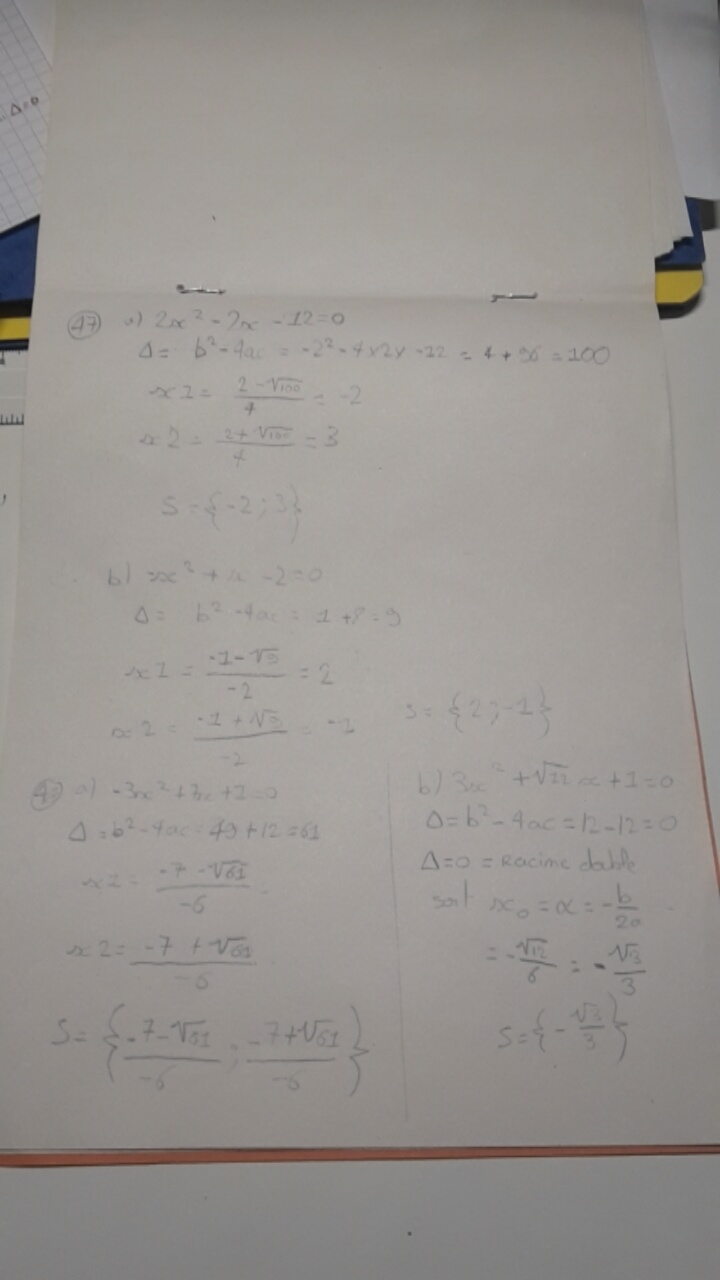 Δ=0
47 a) 2x² - 2x - 12=0
Δ= b²-4ac = -2²-4×2×-12 = 4+96=100
x1 = (2-√100)/4 = -2
x2 = (2+√100)/4 = 3
S = {-2;3}
b) x²+x-2=0
Δ= b²-4ac = 1+8=9
x1 = (-1-√9)/-2 = 2
x2 = (-1+√9)/-2 = -1
S = {2;-1}
a) -3x²+7x+1=0
Δ=b²-4ac=49+12=61
x1 = (-7-√61)/-6
x2 = (-7+√61)/-6
S= {(-7-√61)/-6 ; (-7+√61)/-6}
b) 3x²+√12x+1=0
Δ=b²-4ac=12-12=0
Δ=0 = Racine double
soit x₀ = α = -b/2a
= -√12/6 = -√3/3
S={-√3/3}